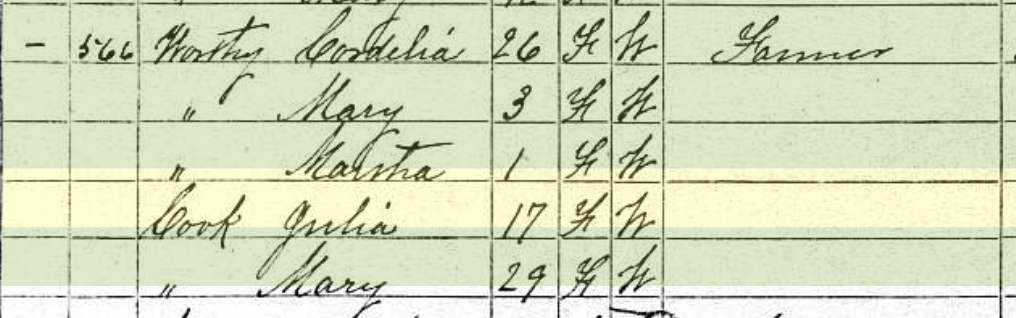 – 566 Worthy Cordelia 26 F W Farmer
" Mary 3 F W
" Martha 1 F W
Cook Julia 17 F W
" Mary 29 F W